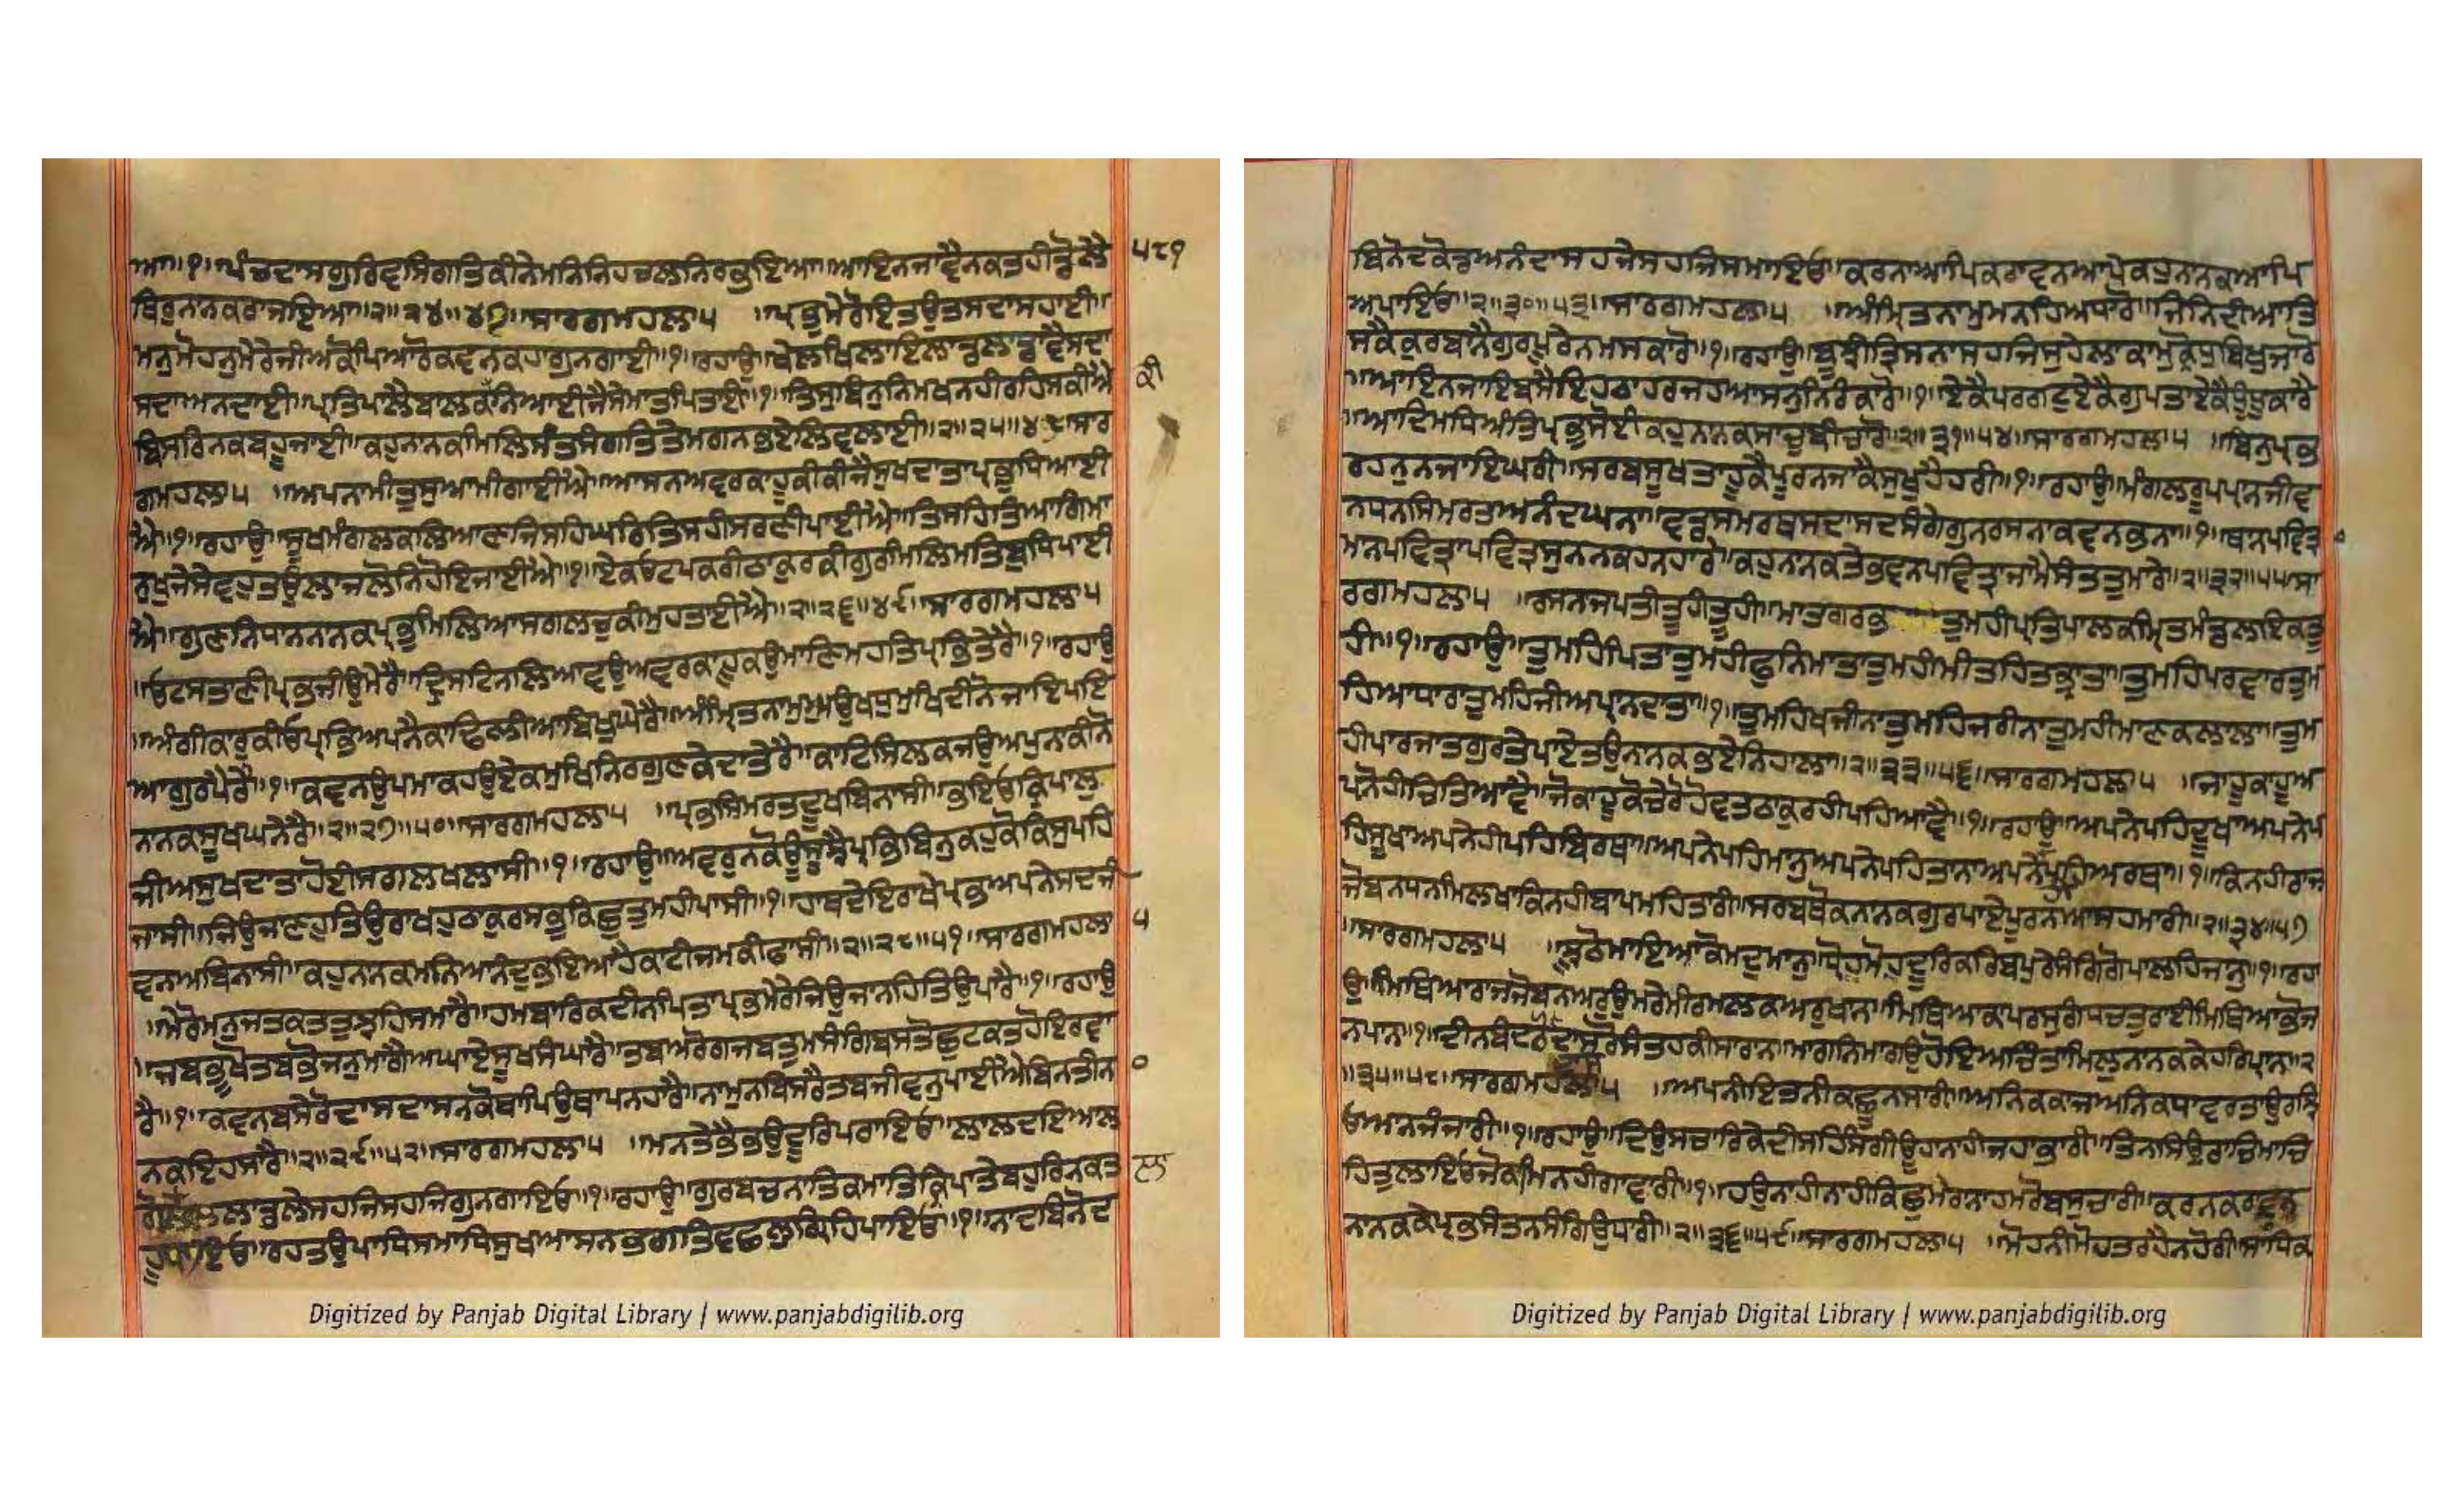 ਆ॥੧॥ਪੰਚਦਾਸਗੁਰਿਵਸਿਗਤਿਕੀਨੇਮਨਿਨਿਹਚਲਨਿਰਭਇਆ॥ਆਇਨਜਾਵੈਨਕਤਹੀਡੋਲੈ ੫੮੧
ਥਿਰੁਨਾਨਕਰਾਜਇਆ॥੨॥੨੪॥੪੭॥ਸਾਰਗਮਹਲਾ੫ ॥ਪ੍ਰਭੁਮੇਰੋਇਤਉਤਸਦਾਸਹਾਈ॥
ਮਨੁਮੋਹਨੁਮੇਰੇਜੀਅਕੋਪਿਆਰੋਕਵਨਕਹਾਗੁਨਗਾਈ॥੧॥ਰਹਾਉ॥ਖੇਲਿਖਿਲਾਇਲਾਡਲਾਡਾਵੈਸਦਾ
ਸਦਾਅਨਦਾਈ॥ਪ੍ਰਤਿਪਾਲੈਬਾਲਕਨਿਆਈਜੈਸੇਮਾਤਪਿਤਾਈ॥੧॥ਤਿਸੁਬਿਨੁਨਿਮਖਨਹੀਰਹਿਸਕੀਐ ਕੀ
ਬਿਸਰਿਨਕਬਹੂਜਾਈ॥ਕਹੁਨਾਨਕਮਿਲਿਸੰਤਸੰਗਤਿਤੇਮਗਨਭਏਲਿਵਲਾਈ॥੨॥੨੫॥੪੮॥ਸਾਰ
ਗਮਹਲਾ੫ ॥ਅਪਨਾਮੀਤੁਸੁਆਮੀਗਾਈਐ॥ਆਸਨਅਵਰਕਾਹੂਕੀਕੀਜੈਸੁਖਦਾਤਾਪ੍ਰਭੁਧਿਆਈ
ਐ॥੧॥ਰਹਾਉ॥ਸੂਖਮੰਗਲਕਲਿਆਣਜਿਸਹਿਘਰਿਤਿਸਹੀਸਰਣੀਪਾਈਐ॥ਤਿਸਹਿਤਿਆਗਿਮਾ
ਰਖੁਜੇਸੇਵਹੁਤਉਲਾਜਲੋਨਿਹੋਇਜਾਈਐ॥੧॥ਏਕਓਟਪਕਰੀਠਾਕੁਰਕੀਗੁਰਮਿਲਿਮਤਿਬੁਧਿਪਾਈ
ਐ॥ਗੁਣਨਿਧਾਨਨਾਨਕਪ੍ਰਭੁਮਿਲਿਆਸਗਲਚੁਕੀਮੁਹਤਾਈਐ॥੨॥੨੬॥੪੯॥ਸਾਰਗਮਹਲਾ੫
॥ਓਟਸਤਾਣੀਪ੍ਰਭਜੀਉਮੇਰੈ॥ਦ੍ਰਿਸਟਿਨਲਿਆਵਉਅਵਰਕਾਹੂਕਉਮਾਣਿਮਹਤਿਪ੍ਰਭਤੇਰੈ॥੧॥ਰਹਾਉ
॥ਅੰਗੀਕਾਰੁਕੀਓਪ੍ਰਭਿਅਪਨੈਕਾਢਿਲੀਆਬਿਖੁਘੇਰੈ॥ਅੰਮ੍ਰਿਤਨਾਮੁਅਉਖਧੁਮੁਖਿਦੀਨੋਜਾਇਪਇ
ਆਗੁਰਪੈਰੈ॥੧॥ਕਵਨਉਪਮਾਕਹਉਏਕਮੁਖਿਨਿਰਗੁਣਕੇਦਾਤੇਰੈ॥ਕਾਟਿਸਿਲਕਜਉਅਪੁਨਾਕੀਨੋ
ਨਾਨਕਸੂਖਘਨੇਰੈ॥੨॥੨੭॥੫੦॥ਸਾਰਗਮਹਲਾ੫ ॥ਪ੍ਰਭਸਿਮਰਤਦੂਖਬਿਨਾਸੀ॥ਭਇਓਕ੍ਰਿਪਾਲੁ
ਜੀਅਸੁਖਦਾਤਾਹੋਈਸਗਲਖਲਾਸੀ॥੧॥ਰਹਾਉ॥ਅਵਰੁਨਕੋਊਸੂਝੈਪ੍ਰਭਬਿਨੁਕਹੁਕੋਕਿਸੁਪਹਿ
ਜਾਸੀ॥ਜਿਉਜਾਣਹੁਤਿਉਰਾਖਹੁਠਾਕੁਰਸਭੁਕਿਛੁਤੁਮਹੀਪਾਸੀ॥੧॥ਹਾਥਦੇਇਰਾਖੇਪ੍ਰਭਅਪਨੇਸਦਜੀ
ਵਨਅਬਿਨਾਸੀ॥ਕਹੁਨਾਨਕਮਨਿਆਨੰਦੁਭਇਆਹੈਕਾਟੀਜਮਕੀਫਾਸੀ॥੨॥੨੮॥੫੧॥ਸਾਰਗਮਹਲਾ ੫
॥ਮੇਰੋਮਨੁਜਤਕਤਤੁਝਹਿਸਮਾਰੈ॥ਹਮਬਾਰਿਕਦੀਨਪਿਤਾਪ੍ਰਭਮੇਰੇਜਿਉਜਾਨਹਿਤਿਉਪਾਰੈ॥੧॥ਰਹਾਉ
॥ਜਬਭੁਖੌਤਬਭੋਜਨੁਮਾਗੈਅਘਾਏਸੂਖਸੰਘਾਰੈ॥ਤਬਅਰੋਗਜਬਤੁਮਸੰਗਿਬਸਤੌਛੁਟਕਤਹੋਇਰਵਾ
ਰੈ॥੧॥ਕਵਨਬਸੇਰੋਦਾਸਦਾਸਨਕੋਥਾਪਿਉਥਾਪਨਹਾਰੈ॥ਨਾਮੁਨਬਿਸਰੈਤਬਜੀਵਨੁਪਾਈਐਬਿਨਤੀਨਾ ੦
ਨਕਇਹਸਾਰੈ॥੨॥੨੯॥੫੨॥ਸਾਰਗਮਹਲਾ੫ ॥ਮਨਤੇਭੈਭਉਦੂਰਿਪਰਾਇਓ॥ਲਾਲਦਇਆਲ
ਲਾਡਲੇਸਹਜਿਸਹਜਿਗੁਨਗਾਇਓ॥੧॥ਰਹਾਉ॥ਗੁਰਬਚਨਾਤਿਕਮਾਤਿਕ੍ਰਿਪਾਤੇਬਹੁਰਿਨਕਤ ਲਾ
ਹੂਧਾਇਓ॥ਰਹਤਉਪਾਧਿਸਮਾਧਿਸੁਖਆਸਨਭਗਤਿਵਛਲੁਗ੍ਰਿਹਿਪਾਇਓ॥੧॥ਨਾਦਬਿਨੋਦ
ਬਿਨੋਦਕੋਡਅਨੰਦਾਸਹਜੇਸਹਜਿਸਮਾਇਓ॥ਕਰਨਾਆਪਿਕਰਾਵਨਆਪੇਕਹੁਨਾਨਕਆਪਿ
ਅਪਾਇਓ॥੨॥੩੦॥੫੩॥ਸਾਰਗਮਹਲਾ੫ ॥ਅੰਮ੍ਰਿਤਨਾਮੁਮਨਹਿਅਧਾਰੋ॥ਜਿਨਿਦੀਆਤਿ
ਸਕੈਕੁਰਬਾਨੈਗੁਰਪੂਰੇਨਮਸਕਾਰੋ॥੧॥ਰਹਾਉ॥ਬੂਝੀਤ੍ਰਿਸਨਾਸਹਜਿਸੁਹੇਲਾਕਾਮੁਕ੍ਰੋਧੁਬਿਖੁਜਾਰੋ
॥ਆਇਨਜਾਇਬਸੈਇਹਠਾਹਰਜਹਆਸਨੁਨਿਰੰਕਾਰੋ॥੧॥ਏਕੈਪਰਗਟੁਏਕੈਗੁਪਤਾਏਕੈਧੁੰਧੂਕਾਰੋ
॥ਆਦਿਮਧਿਅੰਤਿਪ੍ਰਭੁਸੋਈਕਹੁਨਾਨਕਸਾਚੁਬੀਚਾਰੋ॥੨॥੩੧॥੫੪॥ਸਾਰਗਮਹਲਾ੫ ॥ਬਿਨੁਪ੍ਰਭ
ਰਹਨੁਨਜਾਇਘਰੀ॥ਸਰਬਸੂਖਤਾਹੂਕੈਪੂਰਨਜਾਕੈਸੁਖੁਹੈਹਰੀ॥੧॥ਰਹਾਉ॥ਮੰਗਲਰੂਪਪ੍ਰਾਨਜੀਵ
ਨਧਨਸਿਮਰਤਅਨੰਦਘਨਾ॥ਵਡਸਮਰਥਸਦਾਸਦਸੰਗੇਗੁਨਰਸਨਾਕਵਨਭਨਾ॥੧॥ਥਾਨਪਵਿਤ੍ਰ ੦
ਮਾਨਪਵਿਤ੍ਰਾਪਵਿਤ੍ਰਸੁਨਨਕਹਨਹਾਰੇ॥ਕਹੁਨਾਨਕਤੇਭਵਨਪਵਿਤ੍ਰਾਜਾਮੈਸੰਤਤੁਮਾਰੇ॥੨॥੩੨॥੫੫॥ਸਾ
ਰਗਮਹਲਾ੫ ॥ਰਸਨਾਜਪਤੀਤੂਹੀਤੂਹੀ॥ਮਾਤਗਰਭ ਤੁਮਹੀਪ੍ਰਤਿਪਾਲਕਮ੍ਰਿਤਮੰਡਲਇਕਤੁ
ਹੀ॥੧॥ਰਹਾਉ॥ਤੁਮਹਿਪਿਤਾਤੁਮਹੀਫੁਨਿਮਾਤਾਤੁਮਹੀਮੀਤਹਿਤਭ੍ਰਾਤਾ॥ਤੁਮਹਿਪਰਵਾਰਤੁਮ
ਹਿਆਧਾਰਾਤੁਮਹਿਜੀਅਪ੍ਰਾਨਦਾਤਾ॥੧॥ਤੁਮਹਿਖਜੀਨਾਤੁਮਹਿਜਰੀਨਾਤੁਮਹੀਮਾਣਕਲਾਲਾ॥ਤੁਮ
ਹੀਪਾਰਜਾਤਗੁਰਤੇਪਾਏਤਉਨਾਨਕਭਏਨਿਹਾਲਾ॥੨॥੩੩॥੫੬॥ਸਾਰਗਮਹਲਾ੫ ॥ਜਾਹੂਕਾਹੂਅ
ਪੁਨੋਹੀਚਿਤਿਆਵੈ॥ਜੋਕਾਹੂਕੋਚੇਰੋਹੋਵਤਠਾਕੁਰਹੀਪਹਿਆਵੈ॥੧॥ਰਹਾਉ॥ਅਪਨੇਪਹਿਦੂਖਅਪਨੇਪ
ਹਿਸੂਖਾਅਪਨੇਹੀਪਹਿਬਿਰਥਾ॥ਅਪਨੇਪਹਿਮਾਨੁਅਪਨੇਪਹਿਤਾਨਾਅਪਨੇਪਹਿਅਰਥਾ॥੧॥ਕਿਨਹੀਰਾਜ
ਜੋਬਨਧਨਮਿਲਖਾਕਿਨਹੀਬਾਪਮਹਿਤਾਰੀ॥ਸਰਬਥੋਕਨਾਨਕਗੁਰਪਾਏਪੂਰਨਆਸਹਮਾਰੀ॥੨॥੩੪॥੫੭
॥ਸਾਰਗਮਹਲਾ੫ ॥ਝੂਠੋਮਾਇਆਕੋਮਦੁਮਾਨੁ॥ਧ੍ਰੋਹਮੋਹਦੂਰਿਕਰਿਬਪੁਰੇਸੰਗਿਗੋਪਾਲਹਿਜਾਨੁ॥੧॥ਰਹਾ
ਉ॥ਮਿਥਿਆਰਾਜਜੋਬਨਅਰੁਉਮਰੇਮੀਰਮਲਕਅਰੁਖਾਨ॥ਮਿਥਿਆਕਾਪਰਸੁਗੰਧਚਤੁਰਾਈਮਿਥਿਆਭੋਜ
ਨਪਾਨ॥੧॥ਦੀਨਬੰਧਰੋਦਾਸਰੋਸੰਤਹਕੀਸਾਰਾਨ॥ਮਾਗਨਿਮਾਗਉਹੋਇਅਚਿੰਤਾਮਿਲੁਨਾਨਕਕੇਹਰਿਪ੍ਰਾਨ॥੨
॥੩੫॥੫੮॥ਸਾਰਗਮਹਲਾ੫ ॥ਅਪਨੀਇਤਨੀਕਛੂਨਸਾਰੀ॥ਅਨਿਕਕਾਜਅਨਿਕਧਾਵਰਤਾਉਰਝਿ
ਓਆਨਜੰਜਾਰੀ॥੧॥ਰਹਾਉ॥ਦਿਉਸਚਾਰਿਕੇਦੀਸਹਿਸੰਗੀਊਹਾਨਾਹੀਜਹਭਾਰੀ॥ਤਿਨਸਿਉਰਾਚਿਮਾਚਿ
ਹਿਤੁਲਾਇਓਜੋਕਾਮਿਨਹੀਗਾਵਾਰੀ॥੧॥ਹਉਨਾਹੀਨਾਹੀਕਿਛੁਮੇਰਾਨਾਹਮਰੋਬਸੁਚਾਰੀ॥ਕਰਨਕਰਾਵਨ
ਨਾਨਕਕੇਪ੍ਰਭਸੰਤਨਸੰਗਿਉਧਾਰੀ॥੨॥੩੬॥੫੯॥ਸਾਰਗਮਹਲਾ੫ ॥ਮੋਹਨੀਮੋਹਤਰਹੈਨਹੋਰੀ॥ਸਾਧਿਕ
Digitized by Panjab Digital Library | www.panjabdigilib.org
Digitized by Panjab Digital Library | www.panjabdigilib.org